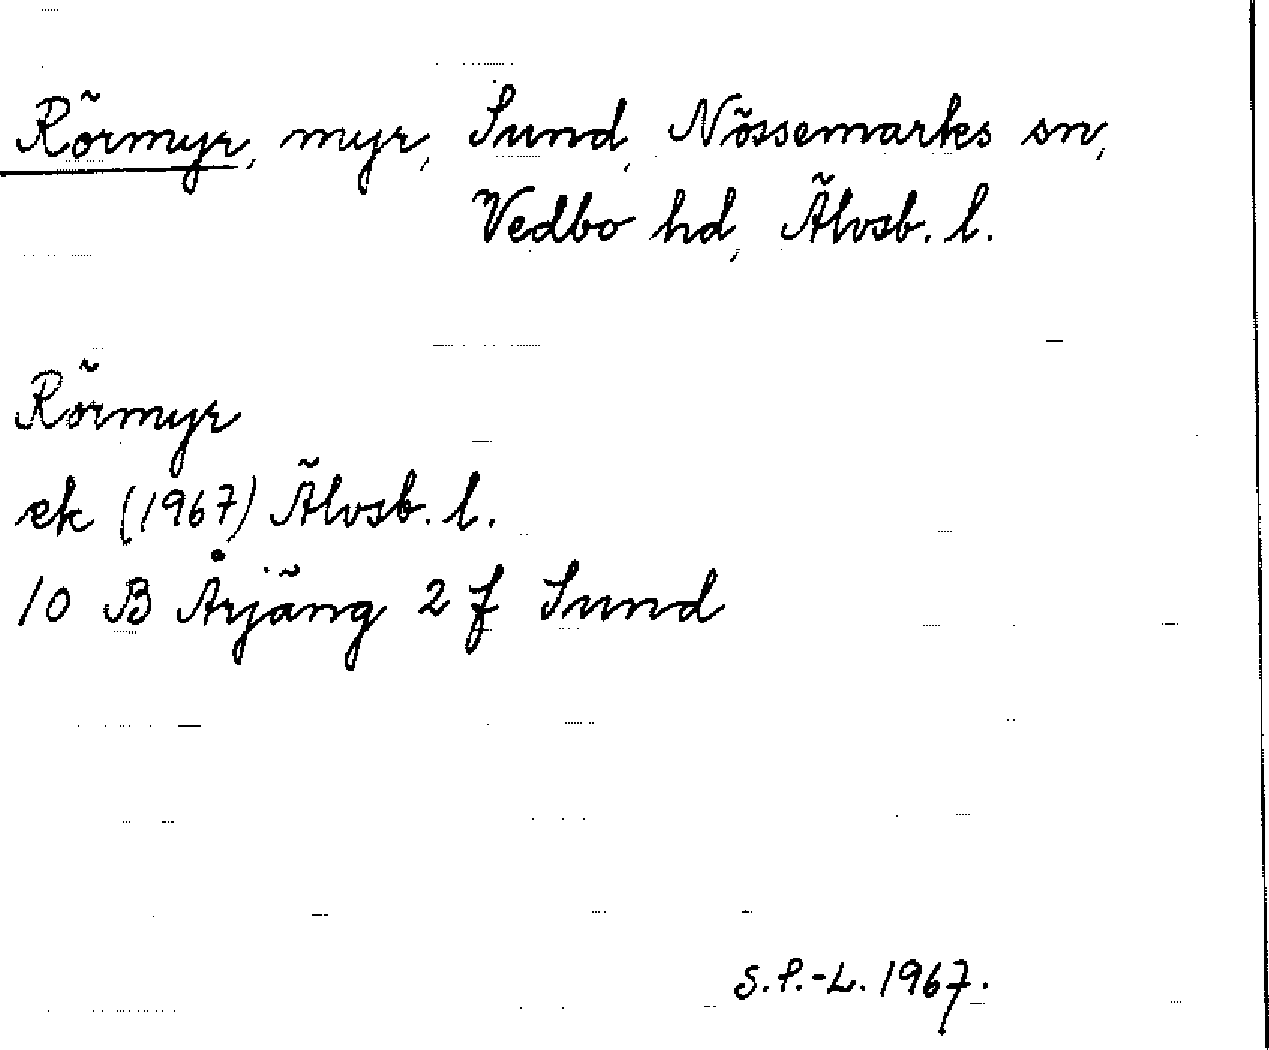 Rörmyr, myr, Sund, Nössemarks sn,
Vedbo hd, Älvsb. l.
Rörmyr
ek (1967) Älvsb. l.
10 B Årjäng 2 f Sund
S.P.-L. 1967.